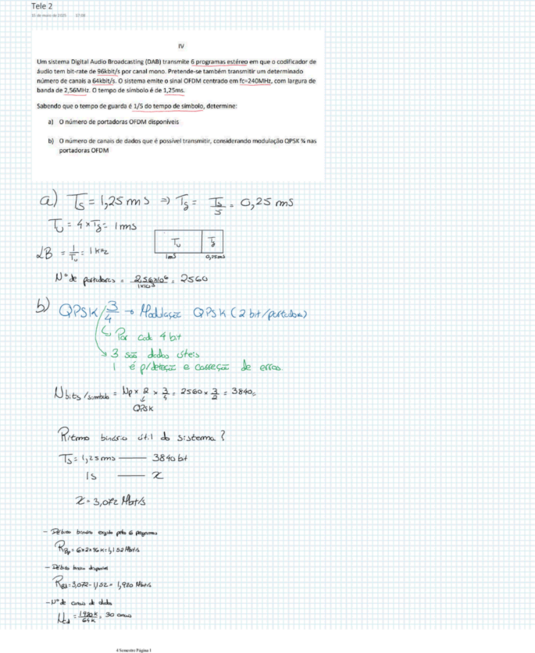 Tele 2
IV
Um sistema Digital Audio Broadcasting (DAB) transmite 6 programas estéreo em que o codificador de
áudio tem bit-rate de 96kbit/s por canal mono. Pretende-se também transmitir um determinado
número de canais a 64kbit/s. O sistema emite o sinal OFDM centrado em fc=240MHz, com largura de
banda de 2,56MHz. O tempo de símbolo é de 1,25ms.
Sabendo que o tempo de guarda é 1/5 do tempo de símbolo, determine:
a) O número de portadoras OFDM disponíveis
b) O número de canais de dados que é possível transmitir, considerando modulação QPSK ¾ nas
portadoras OFDM
a) Ts = 1,25 ms => Tg = Ts/5 = 0,25 ms
Tu = 4 × Tg = 1ms
Tu Tg
1ms 0,25ms
LB = 1/Tu = 1 kHz
Nº de portadoras = 2,56×10⁶ / 1×10³ = 2560
b) QPSK 3/4 → Modulação QPSK (2 bit/portadora)
Por cada 4 bit
3 são dados úteis
1 é p/ deteção e correção de erros
Nbits/símbolo = Np × 2 × 3/4 = 2560 × 3/2 = 3840
QPSK
Ritmo binário útil do sistema?
Ts = 1,25 ms —— 3840 bit
1s —— x
x = 3,072 Mbit/s
- Débito binário exigido pelos 6 programas
= 6×2×96 k = 1,152 Mbit/s
- Débito binário disponível
= 3,072 - 1,152 = 1,920 Mbit/s
- Nº de canais de dados
= 1920 k / 64 k = 30 canais
4 Semestre Página 1